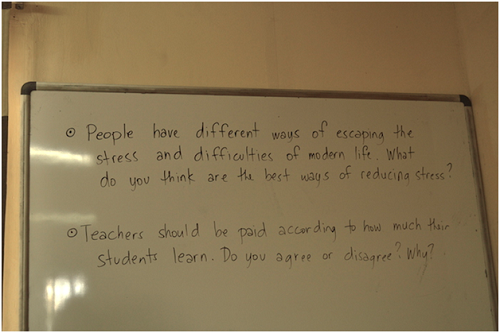 ⊙ People have different ways of escaping the
stress and difficulties of modern life. What
do you think are the best ways of reducing stress?
⊙ Teachers should be paid according to how much their
students learn. Do you agree or disagree? Why?